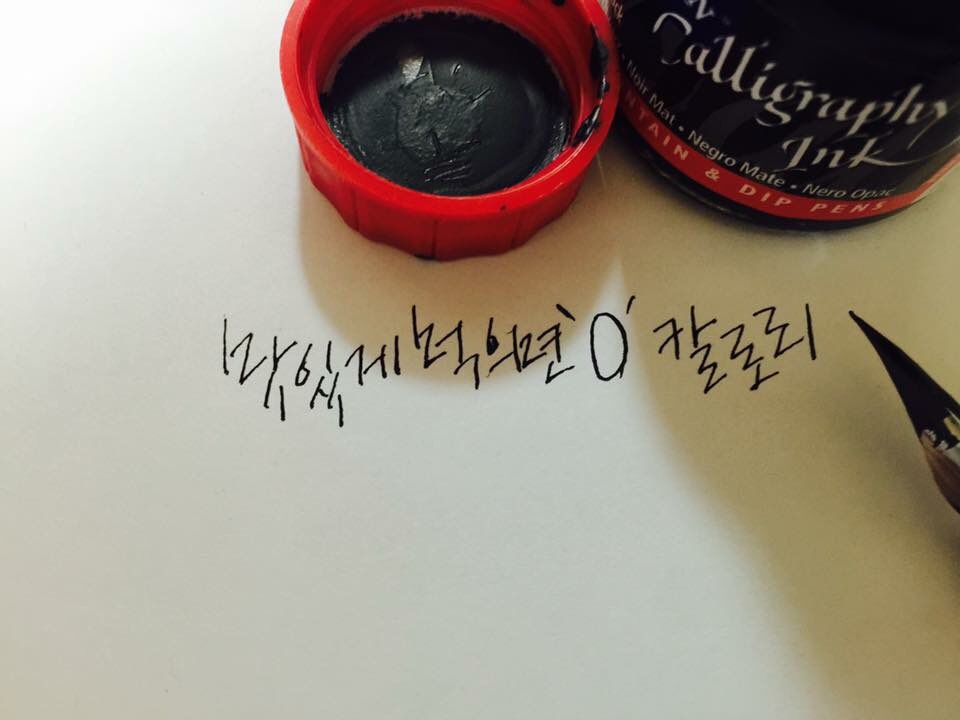 Calligraphy
Ink
Noir Mat • Negro Mate • Nero Opac
NTAIN & DIP PENS
맛있게 먹으면 '0' 칼로리